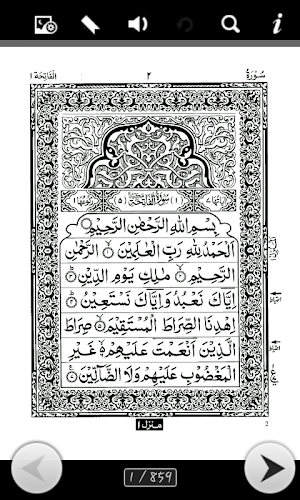 سُوْرَةُ ٢ اَلْفَاتِحَة ١
(١) سُوْرَةُ الْفَاتِحَةِ (٥)
بِسْمِ اللهِ الرَّحْمٰنِ الرَّحِيْمِ
اَلْحَمْدُ لِلّٰهِ رَبِّ الْعٰلَمِيْنَ ۝١ الرَّحْمٰنِ
الرَّحِيْمِ ۝٢ مٰلِكِ يَوْمِ الدِّيْنِ ۝٣
اِيَّاكَ نَعْبُدُ وَاِيَّاكَ نَسْتَعِيْنُ ۝٤
اِهْدِنَا الصِّرَاطَ الْمُسْتَقِيْمَ ۝٥ صِرَاطَ
الَّذِيْنَ اَنْعَمْتَ عَلَيْهِمْ ۝٦ غَيْرِ
الْمَغْضُوْبِ عَلَيْهِمْ وَلَا الضَّآلِّيْنَ ۝٧
منزل ١
2
1 / 859